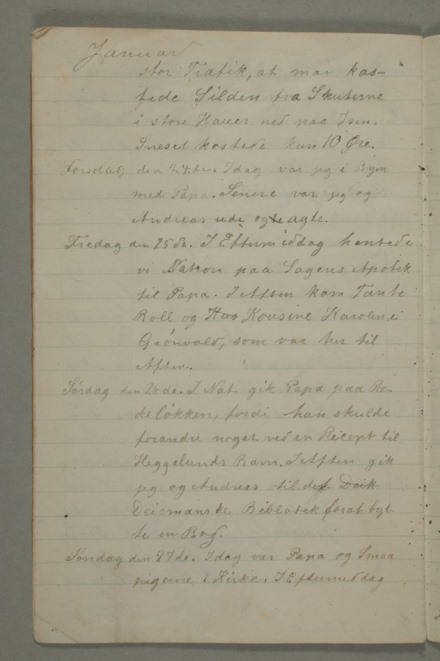 Januar
stor Trafik, at man kas-
tede Silden fra Skuterne
i store Hauer ned paa Isen.
Sneset kostede kun 10 Øre.
Torsdag den 24de. Idag var jeg i Byen
med Papa. Senere var jeg og
Andreas ude og agte.
Fredag den 25de. I Eftermiddag hentede
vi Natron paa Sagens Apotek
til Papa. I Aften kom Tante
Roll og Kousine Karoline
Grönvold, som var her til
Aften.
Lørdag den 26de. I Nat gik Papa paa Ro-
deløkken, fordi han skulde
forandre noget ved en Recept til
Heggelunds Barn. I Aften gik
jeg og Andreas til det Deik
Deicmanske Bibliotek forat byt
te en Bog.
Søndag den 27de. Idag var Papa og Smaa
pigerne i Kirke. I Eftermiddag